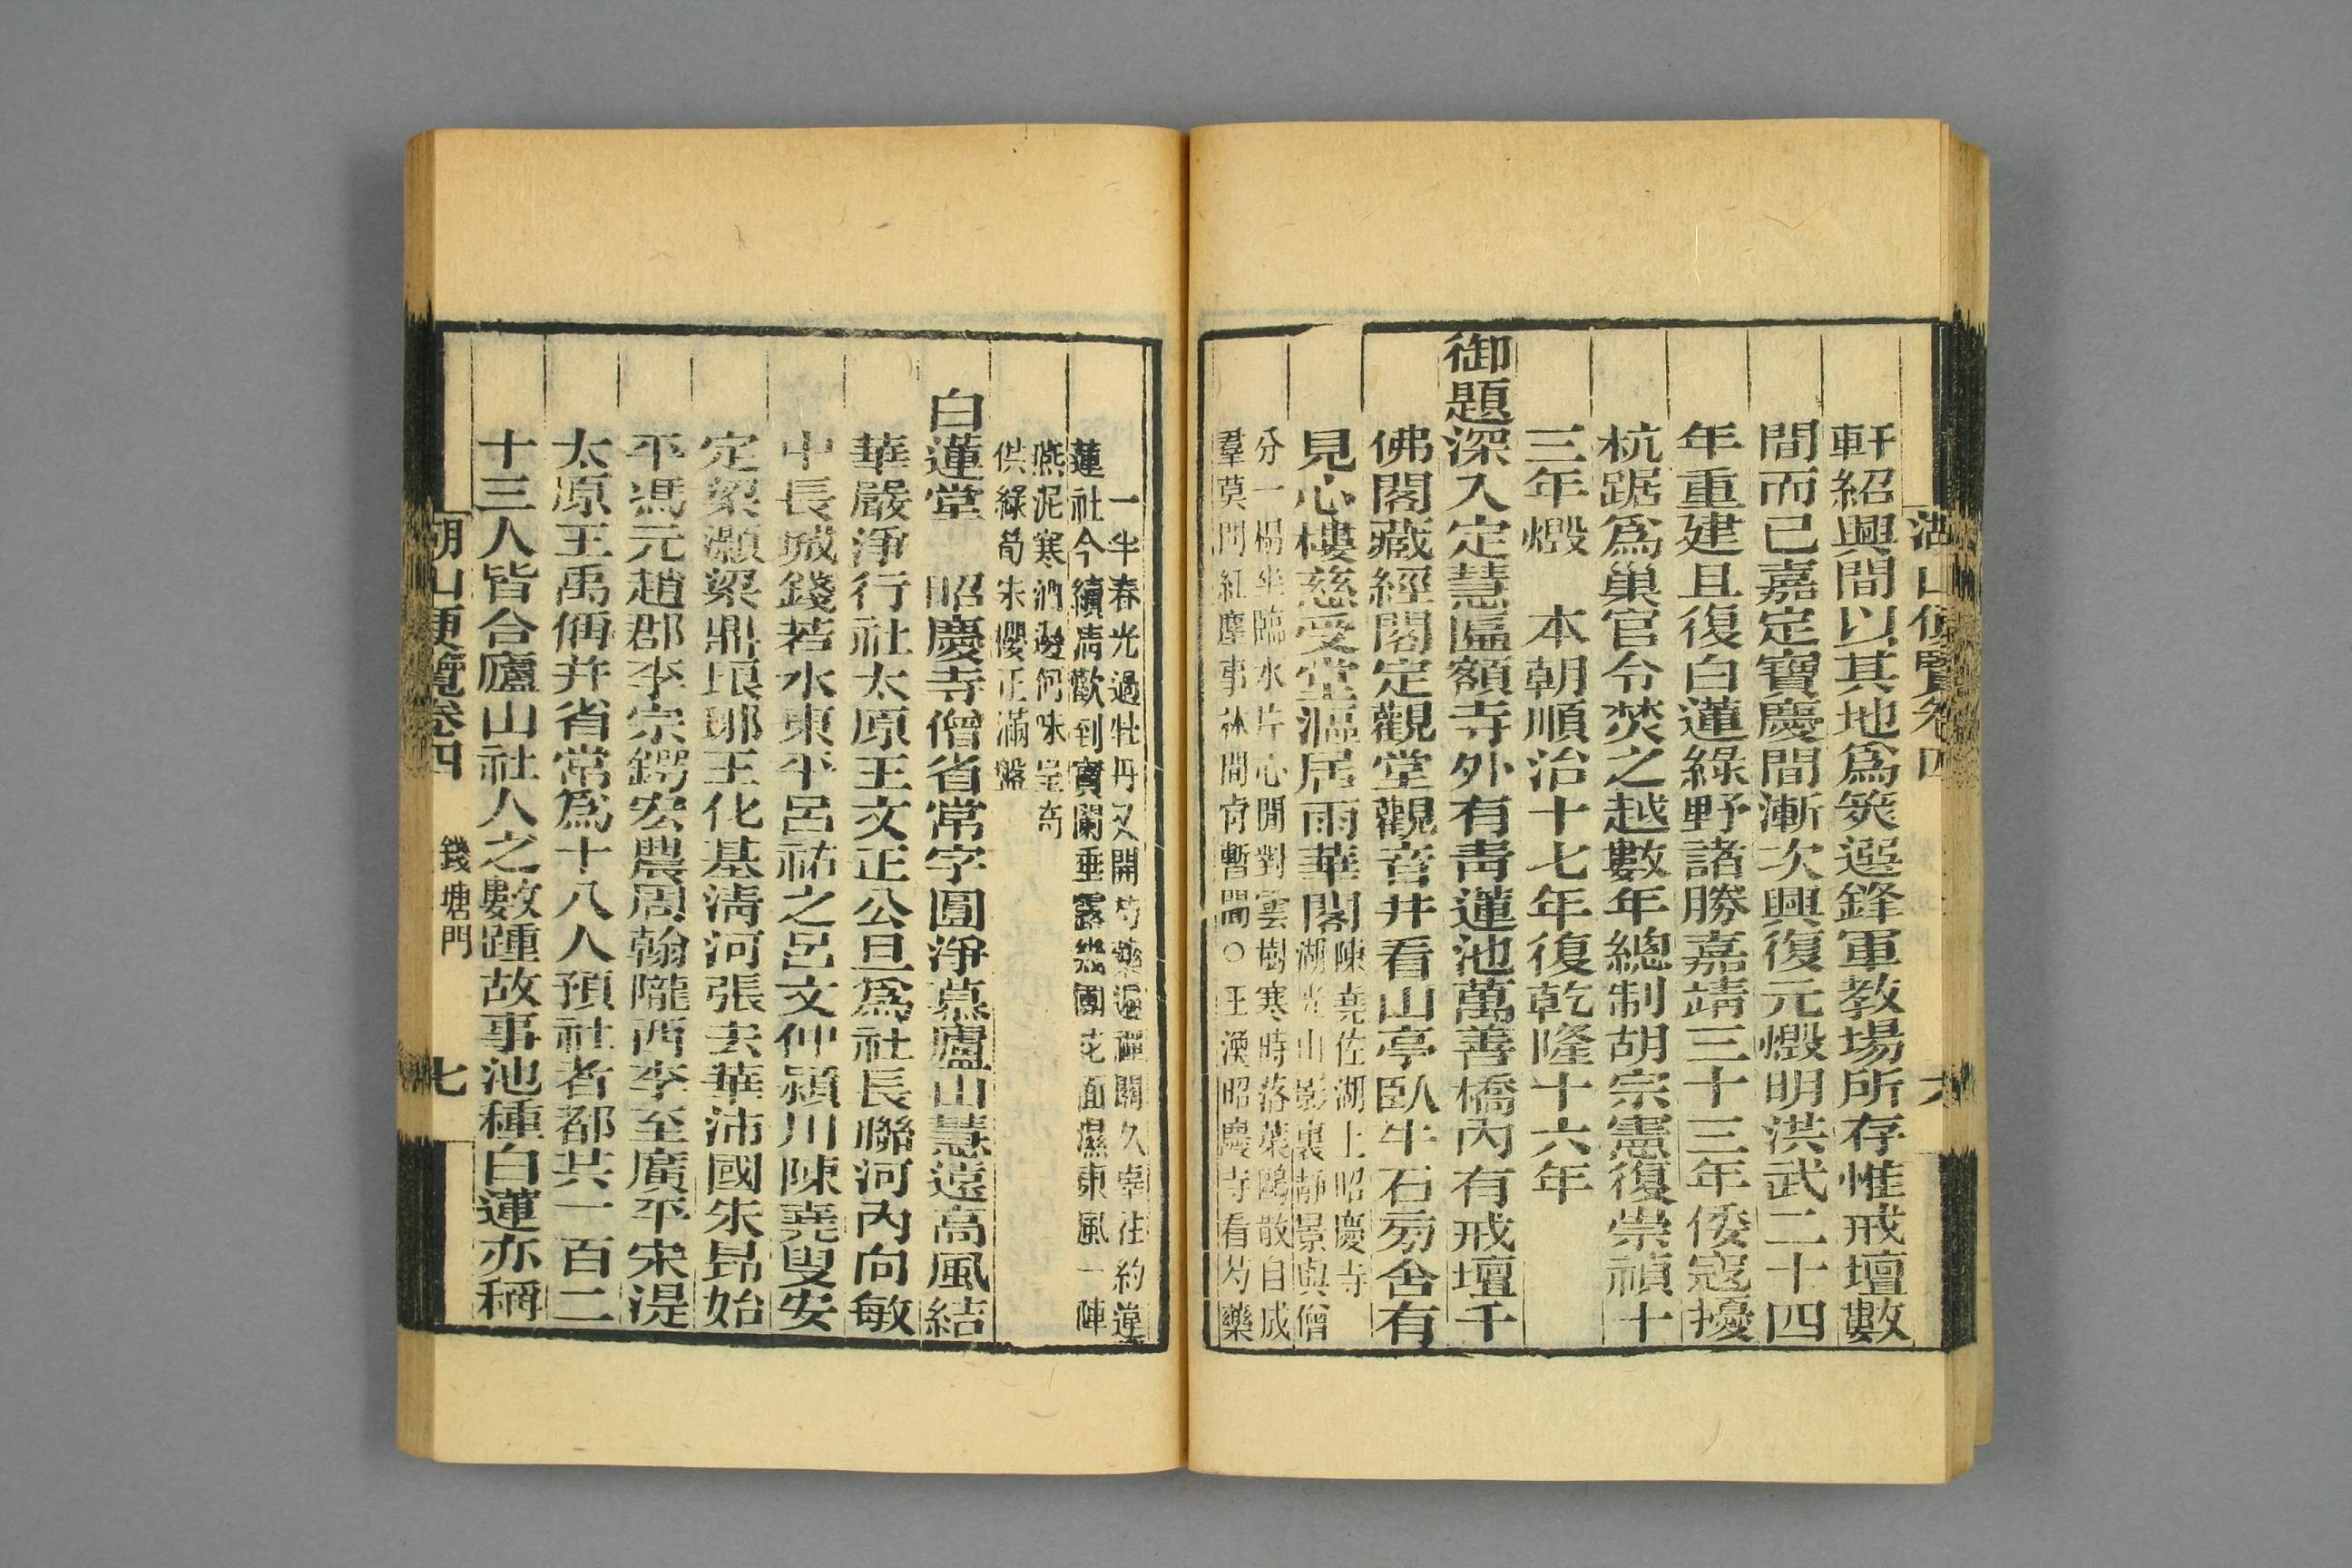 湖山便覽卷四
六
軒紹興間以其地爲筴選鋒軍教場所存惟戒壇數
間而已嘉定寶慶間漸次興復元燬明洪武二十四
年重建且復白蓮綠野諸勝嘉靖三十三年倭寇擾
杭踞爲巢官令焚之越數年總制胡宗憲復崇禎十
三年燬 本朝順治十七年復乾隆十六年
御題深入定慧匾額寺外有靑蓮池萬善橋內有戒壇千
佛閣藏經閣定觀堂觀音井看山亭臥牛石旁舍有
見心樓慈受堂漚居雨華閣
陳堯佐湖上昭慶寺
湖光山影裏靜景與僧
分一榻坐臨水片心閒對雲樹寒時落葉鷗散自成
羣莫問紅塵事林間肯暫聞○王漁昭慶寺看芍藥
一半春光過牡丹又開芍藥遍禪關久辜社約違
蓮社今續淸歡到寶闌垂露幾團花面濕東風一陣
燕泥寒酒邊何味呈奇
供綠筍朱櫻正滿盤
白蓮堂 昭慶寺僧省常字圓淨慕廬山慧遠高風結
華嚴淨行社太原王文正公旦爲社長聯河內向敏
中長城錢若水東平呂祐之呂文仲潁川陳堯叟安
定梁灝梁鼎琅琊王化基淸河張去華沛國朱昂始
平馮元趙郡李宗鍔宏農周翰隴西李至廣平宋湜
太原王禹偁并省常爲十八人預社者都共一百二
十三人皆合廬山社人之數踵故事池種白蓮亦稱
湖山便覽卷四
錢塘門
七